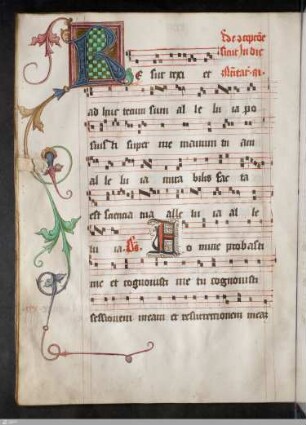 R E sur rexi et
ad huc tecum sum al le lu ia po
suis ti super me manum tu am
al le lu ia mira bilis fac ta
est sciencia tua alle lu ia al le
lu ia. Ps. D o mine probasti
me et cognovisti me tu cognovisti
sessionem meam et resurrectionem meaz